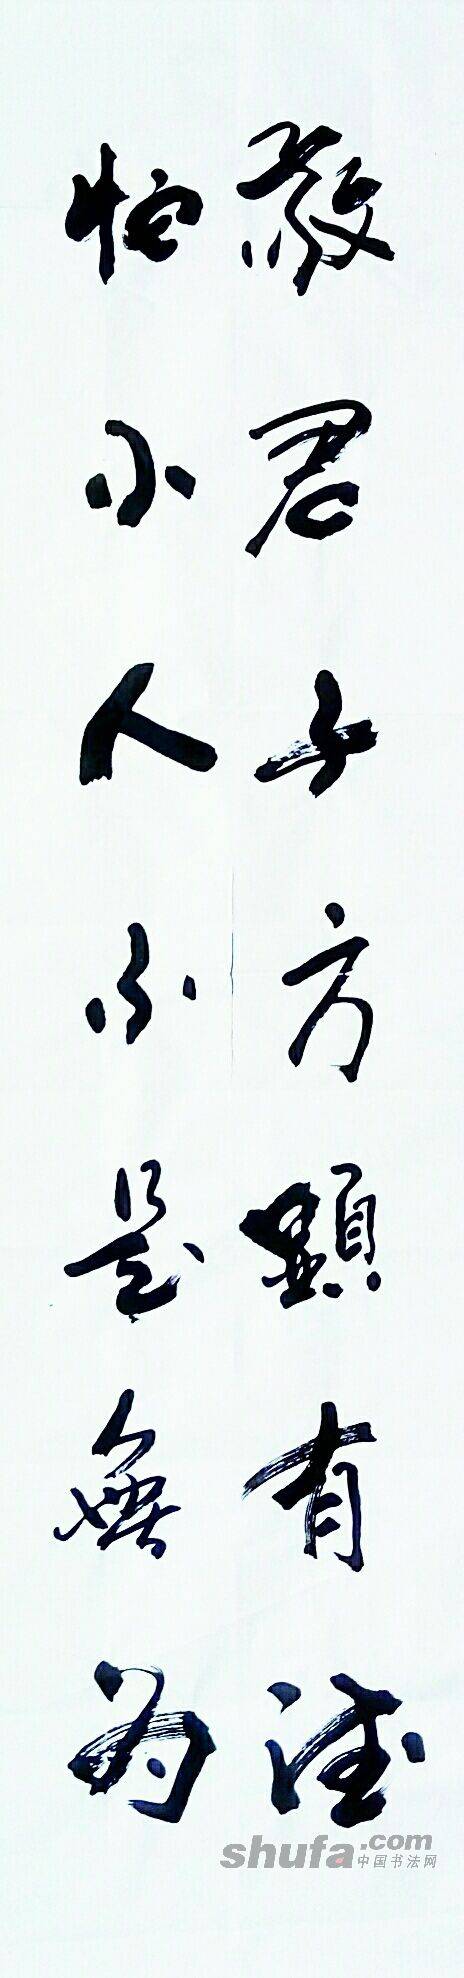 敬君子方顯有德
怕小人不是無為
shufa.com
中国书法网